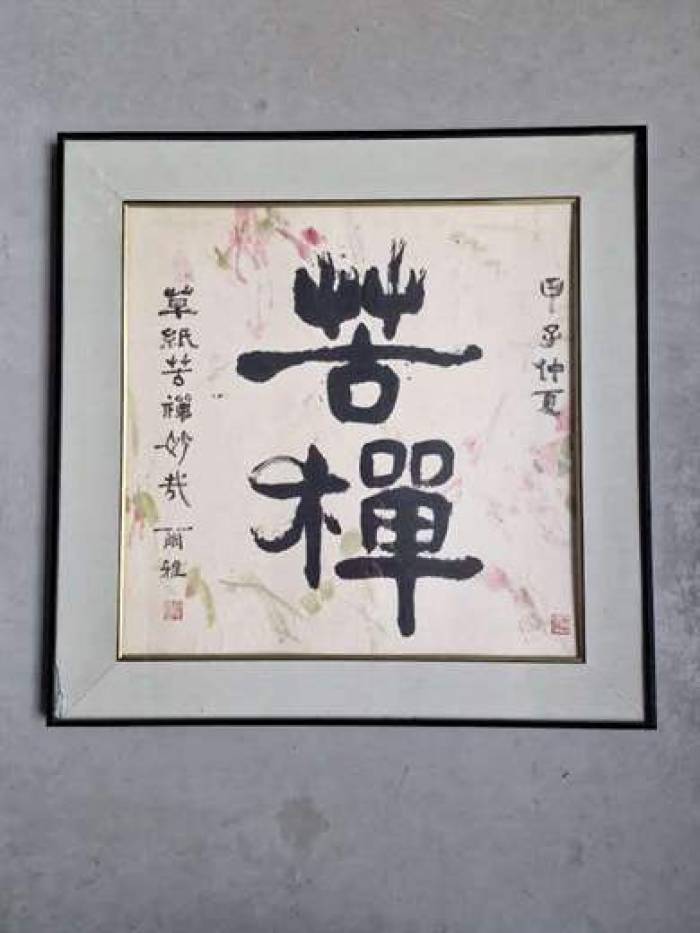 甲子仲夏
苦禪
草紙苦禪妙哉 爾雅